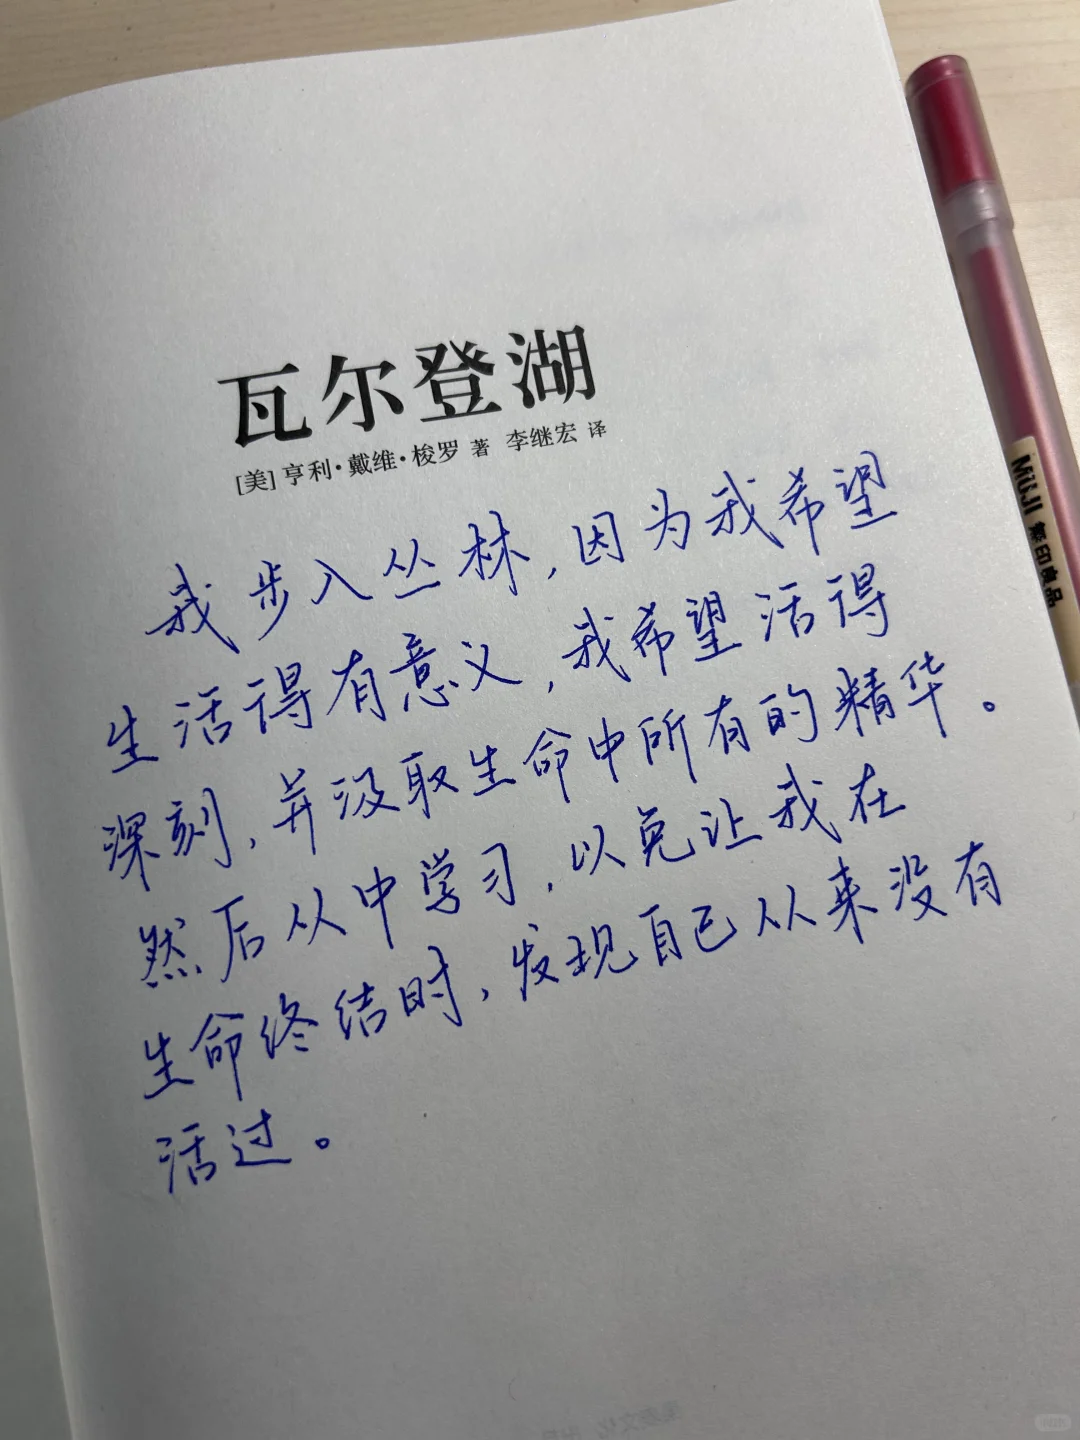 瓦尔登湖
[美] 亨利·戴维·梭罗 著 李继宏 译
我步入丛林，因为我希望
生活得有意义，我希望活得
深刻，并汲取生命中所有的精华。
然后从中学习，以免让我在
生命终结时，发现自己从来没有
活过。
MUJI 無印良品